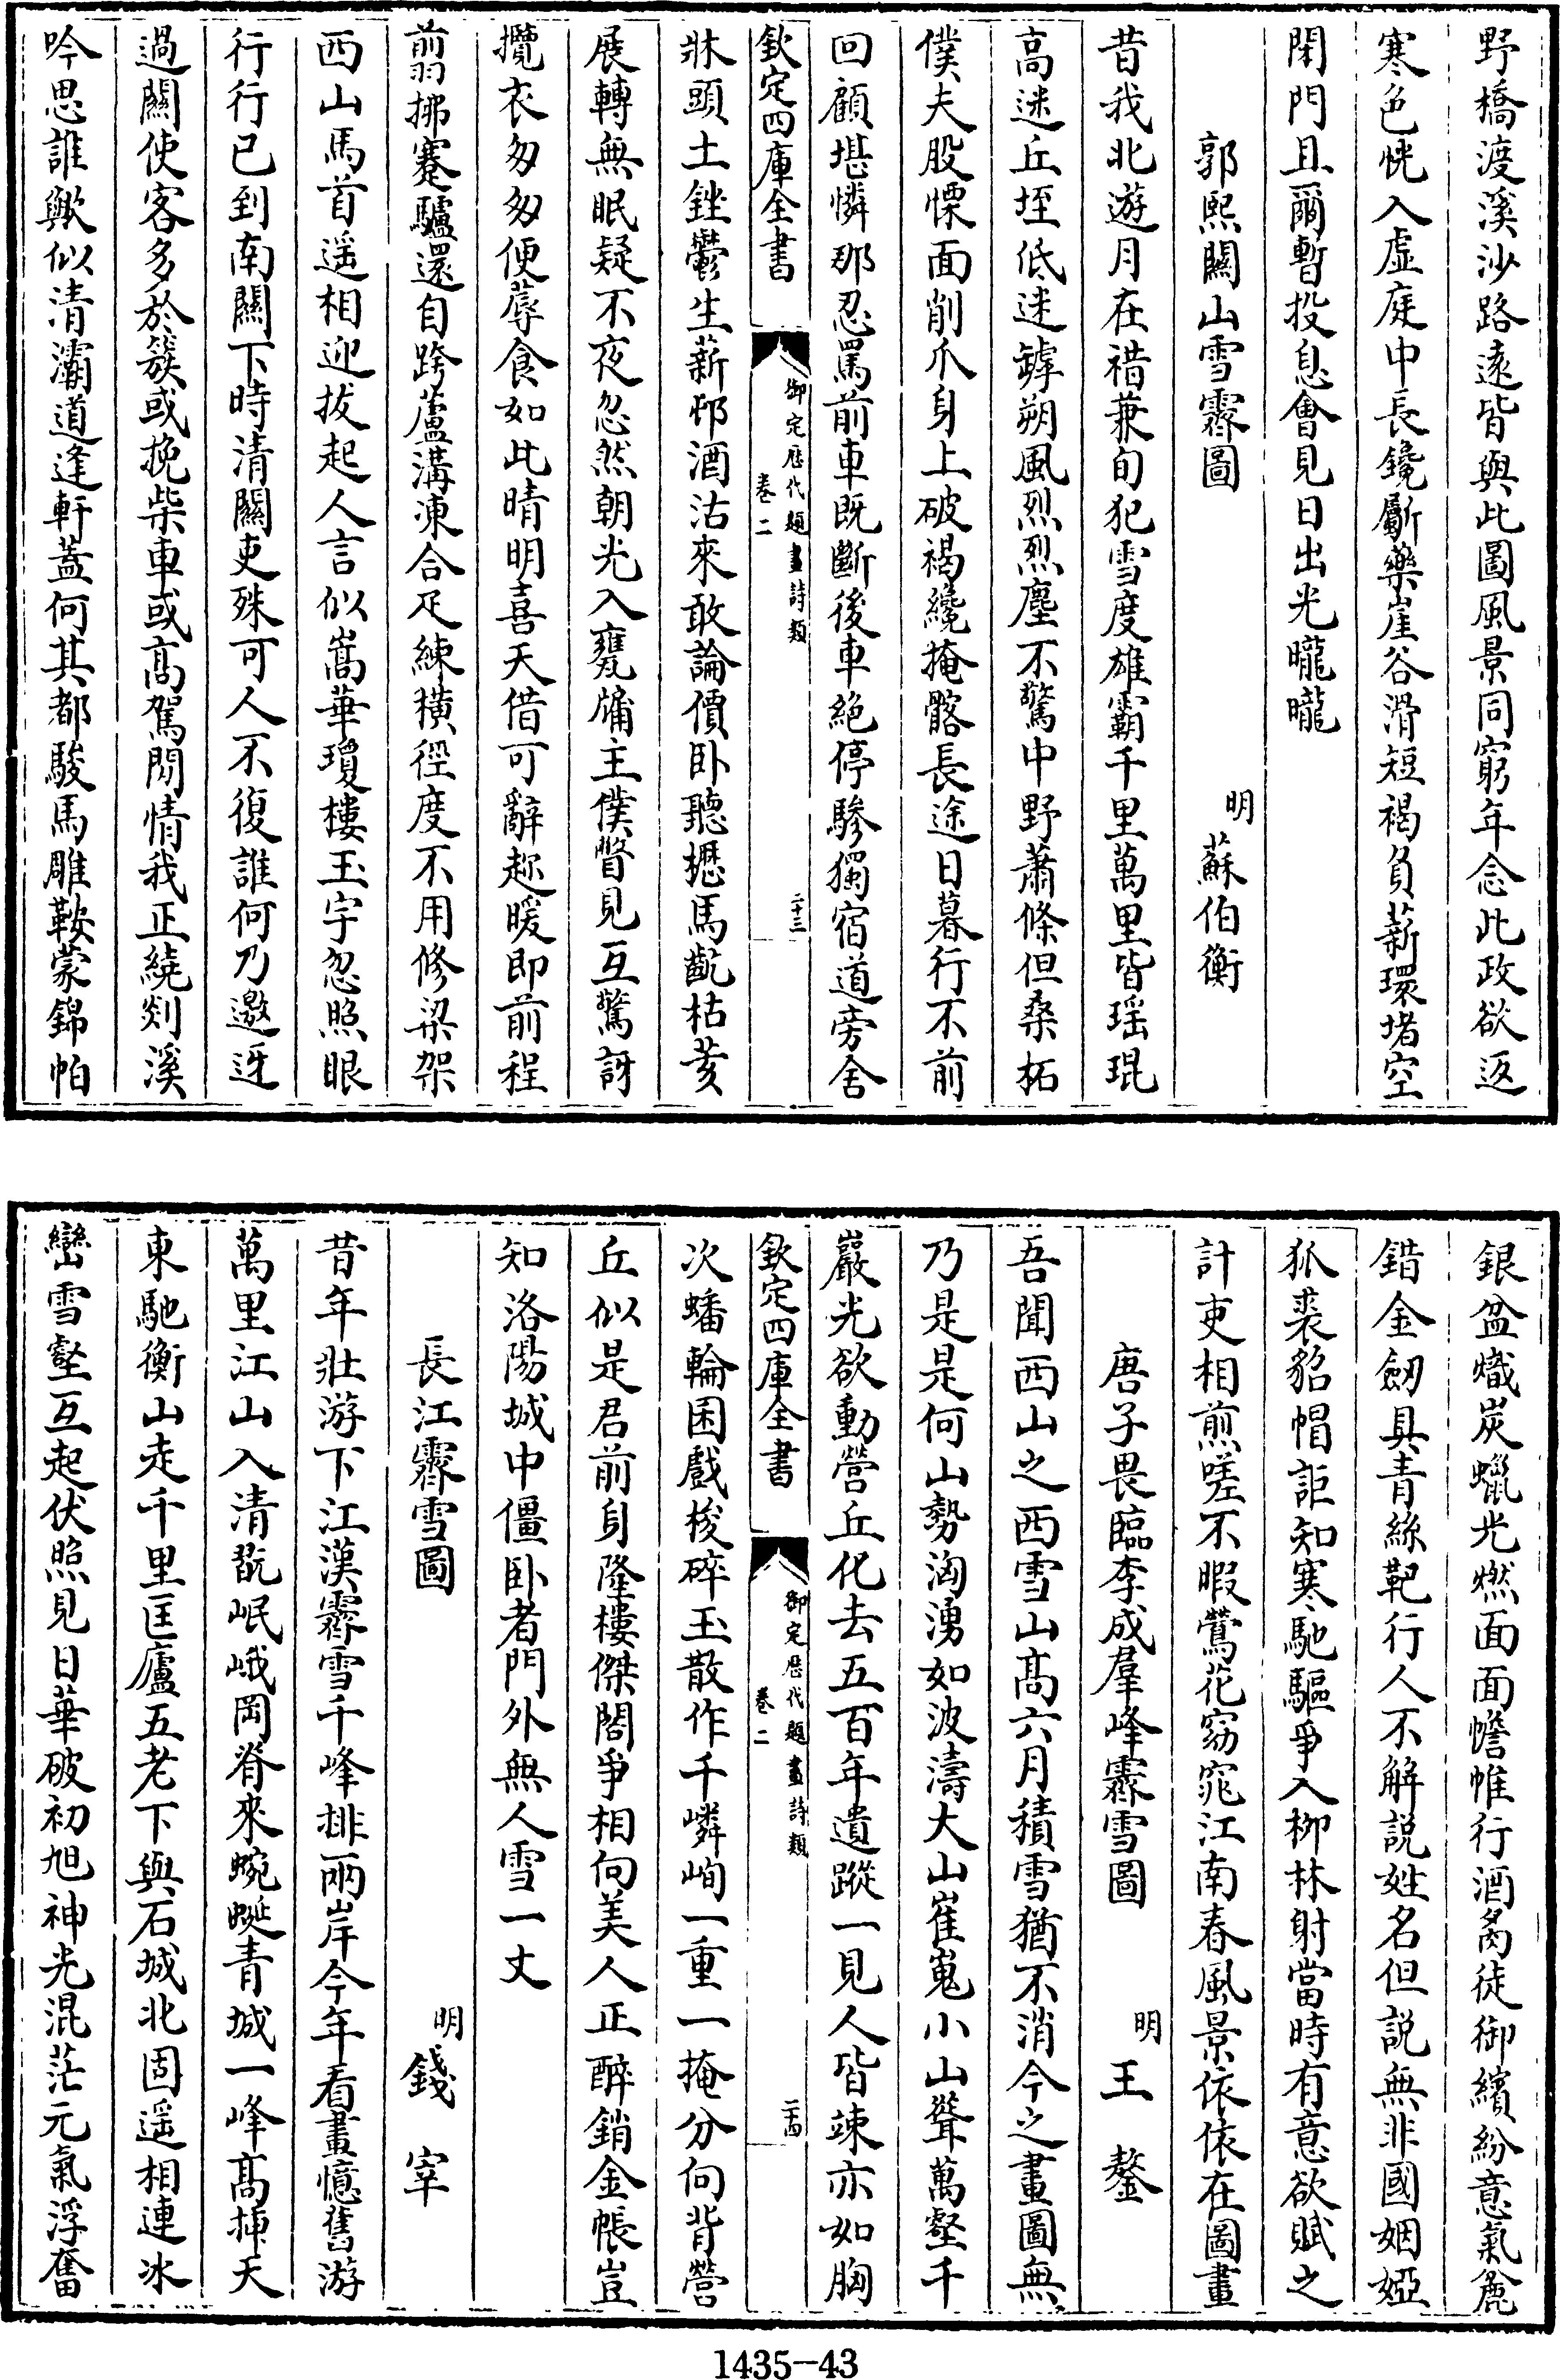 野橋渡溪沙路遠皆與此圖風景同窮年念此政欲返
寒色恍入虚庭中長鑱斸藥崖谷滑短褐負薪環堵空
閉門且爾暫投息會見日出光曨曨
郭熙關山雪霽圖
明
蘇伯衡
昔我北遊月在禇兼旬犯雪度雄霸千里萬里皆瑶琨
高迷丘垤低迷罅朔風烈烈塵不驚中野蕭條但桑柘
僕夫股慄面削爪身上破褐纔掩髂長途日暮行不前
回顧堪憐那忍罵前車既斷後車絶停驂獨宿道旁舍
欽定四庫全書
御定歴代題畫詩類
卷二
二十三
牀頭土銼鬱生薪邨酒沽來敢論價卧聽櫪馬齕枯荄
展轉無眠疑不夜忽然朝光入甕牖主僕瞥見互驚訝
攬衣匆匆便蓐食如此晴明喜天借可辭趂暖即前程
翦拂蹇驢還自跨蘆溝凍合疋練横徑度不用修梁架
西山馬首遥相迎拔起人言似嵩華瓊樓玉宇忽照眼
行行已到南關下時清關吏殊可人不復誰何乃邀迓
過關使客多於簇或挽柴車或高駕閒情我正繞剡溪
吟思誰歟似清灞道逢軒蓋何其都駿馬雕鞍蒙錦帕
銀盆熾炭蠟光燃面面幨帷行酒𦙍徒御繽紛意氣麄
錯金劒具青絲靶行人不解説姓名但説無非國姻婭
狐裘貂帽詎知寒馳驅爭入柳林射當時有意欲賦之
計吏相煎嗟不暇鶯花窈窕江南春風景依依在圖畫
唐子畏臨李成羣峰霽雪圖
明
王鏊
吾聞西山之西雪山高六月積雪猶不消今之畫圖無
乃是是何山勢洶湧如波濤大山崔嵬小山聳萬壑千
巖光欲動營丘化去五百年遺蹤一見人皆竦亦如胸
欽定四庫全書
御定歴代題畫詩類
卷二
二十四
次蟠輪囷戲梭碎玉散作千嶙峋一重一掩分向背營
丘似是君前身隆樓傑閣爭相向美人正醉銷金帳豈
知洛陽城中僵卧者門外無人雪一丈
長江霽雪圖
明
錢宰
昔年壯游下江漢霽雪千峰排兩岸今年看畫憶舊游
萬里江山入清翫岷峨岡脊來蜿蜒青城一峰高揷天
東馳衡山走千里匡廬五老下與石城北固遥相連冰
巒雪壑互起伏照見日華破初旭神光混茫元氣浮奮
1435-43